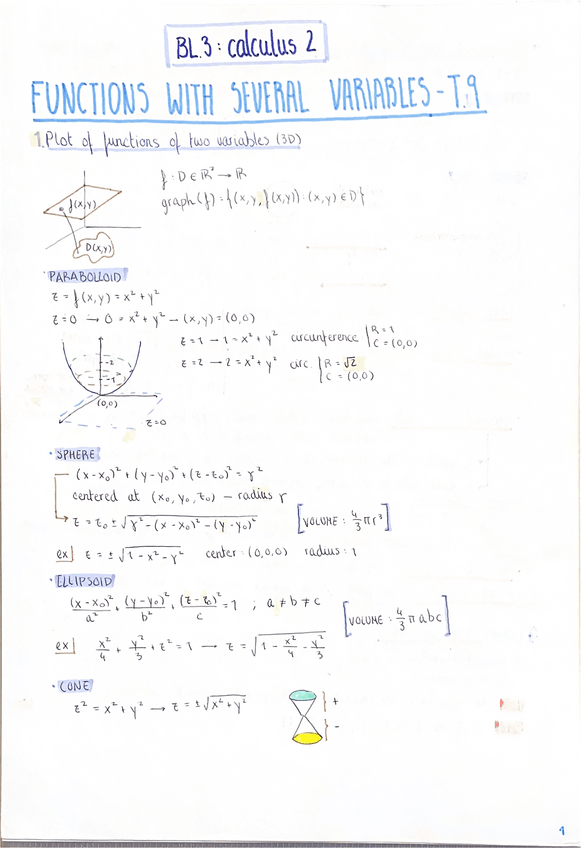 BL.3: calculus 2
FUNCTIONS WITH SEVERAL VARIABLES - T.9
1. Plot of functions of two variables (3D)
f: D ∈ ℝ² → ℝ
graph(f) = {(x,y, f(x,y)) : (x,y) ∈ D}
f(x,y)
D(x,y)
· PARABOLLOID
z = f(x,y) = x² + y²
z=0 → 0 = x² + y² → (x,y) = (0,0)
z=1 → 1 = x² + y² circunference | R = 1
C = (0,0)
z=2 → 2 = x² + y² circ | R = √2
C = (0,0)
2
1
(0,0)
z=0
· SPHERE
(x-x₀)² + (y-y₀)² + (z-z₀)² = r²
centered at (x₀, y₀, z₀) – radius r
z = z₀ ± √(r² - (x-x₀)² - (y-y₀)²) [VOLUME: 4/3 π r³]
ex| z = ± √(1 - x² - y²) center: (0,0,0) radius: 1
· ELLIPSOID
(x-x₀)²/a² + (y-y₀)²/b² + (z-z₀)²/c = 1 ; a ≠ b ≠ c
[VOLUME: 4/3 π abc]
ex| x²/4 + y²/3 + z² = 1 → z = √(1 - x²/4 - y²/3)
· CONE
z² = x² + y² → z = ± √(x² + y²)
+
-
1